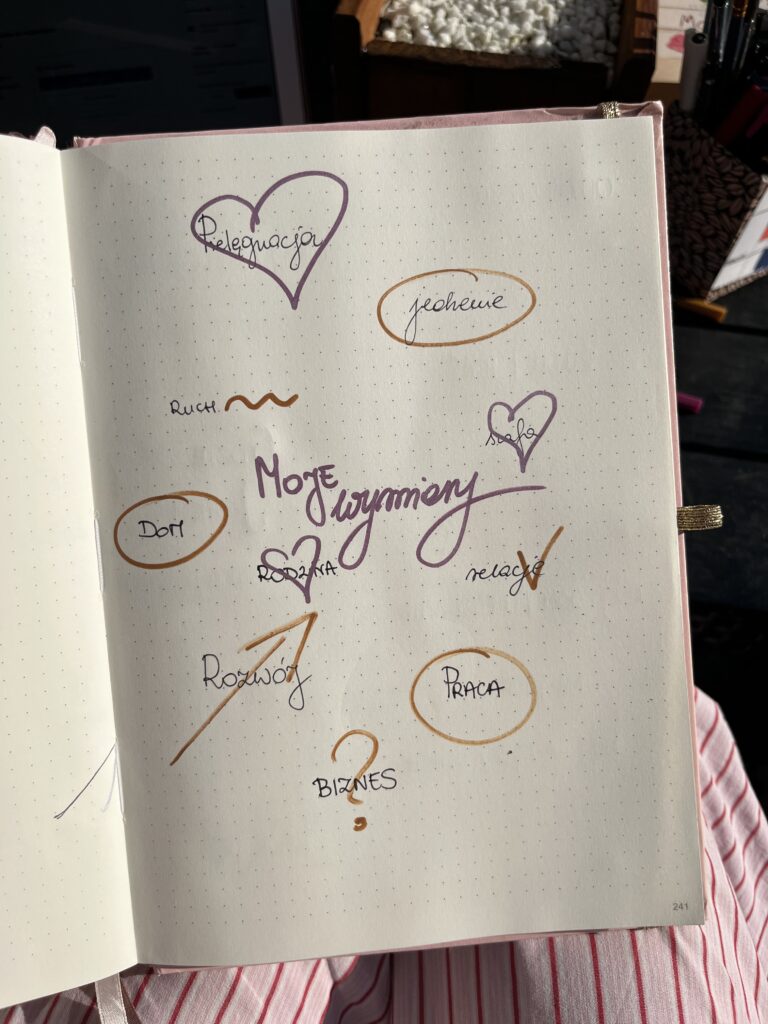 Pielęgnacja
jedzenie
RUCH
szafa
MOJE
wymiary
DOM
RODZINA
relacje
Rozwój
PRACA
BIZNES
?
241